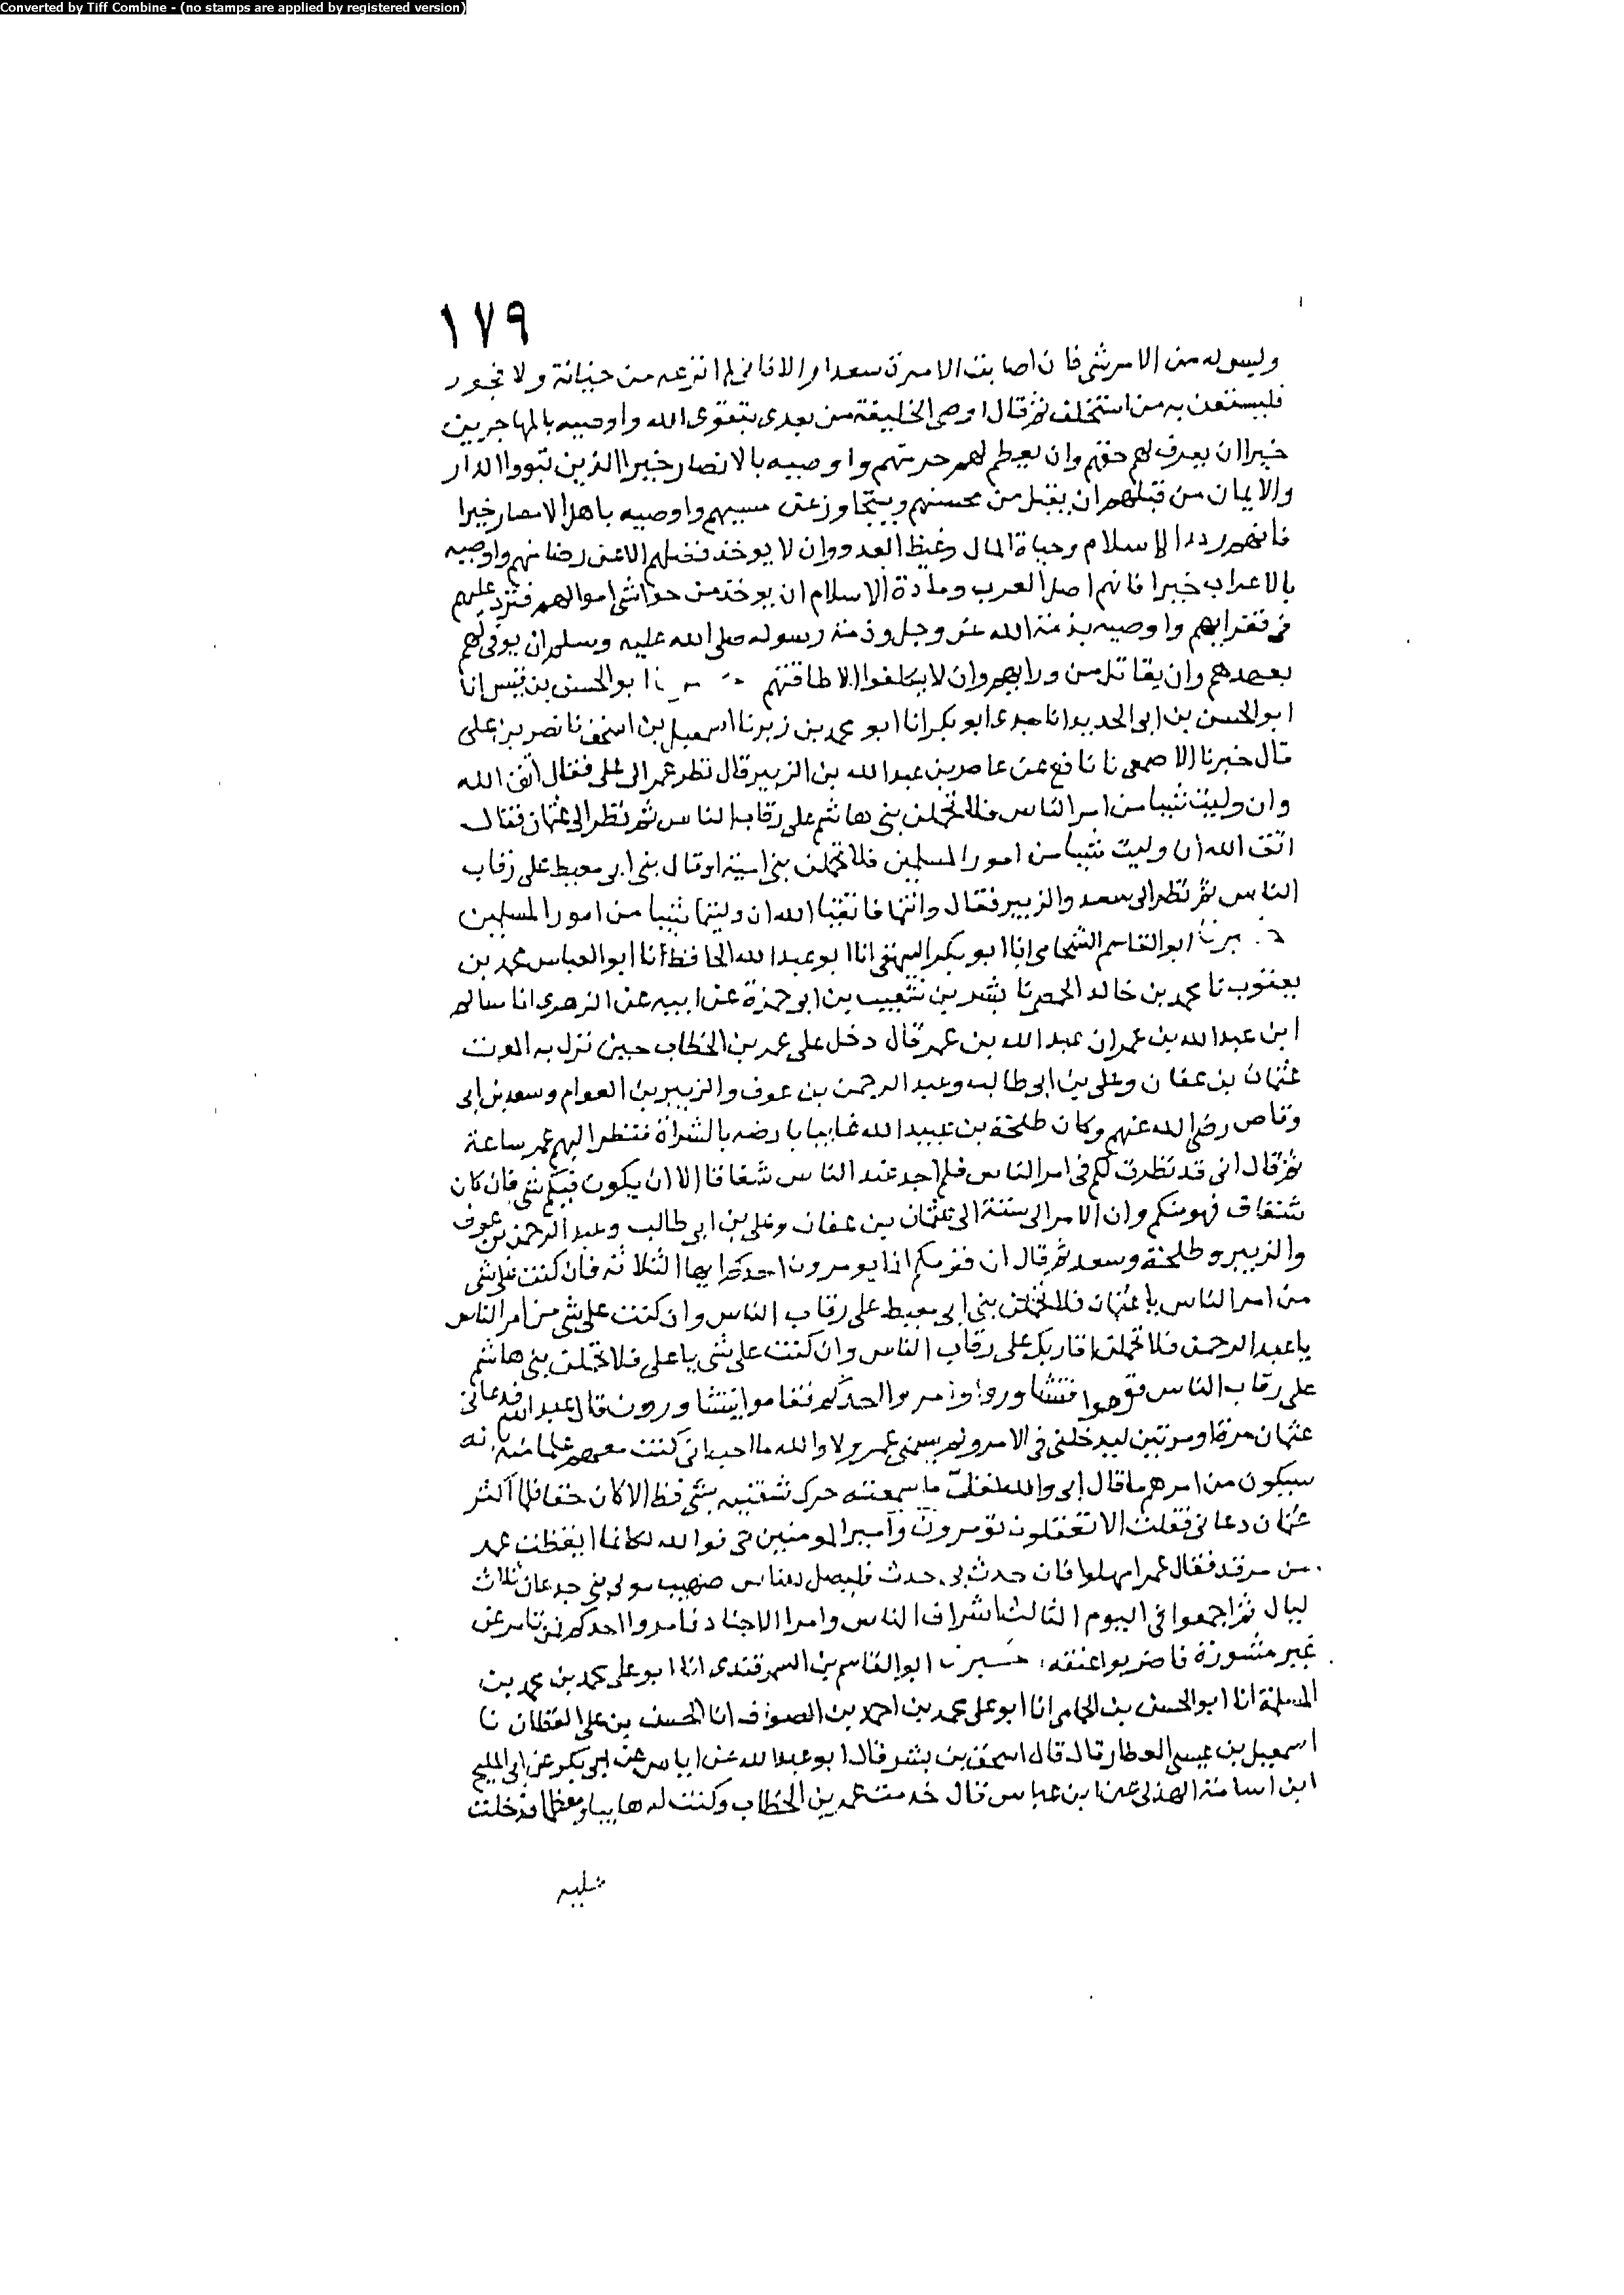 Converted by Tiff Combine - (no stamps are applied by registered version)
١٧٩
وليس له من الامر شى فان اصابت الامرة سعدا والا فانى لم انزعه من خيانة ولا فجور
فليستعن به من استخلف ثم قال اوصى الخليفة من بعدى بتقوى الله واوصيه بالمهاجرين
خيرا ان يعرف لهم حقهم وان يعظم لهم حرمتهم واوصيه بالانصار خيرا الذين تبووا الدار
والايمان من قبلهم ان يقبل من محسنهم ويتجاوز عن مسيهم واوصيه باهل الامصار خيرا
فانهم ردء الاسلام وجباة المال وغيظ العدو وان لا يوخذ فضلهم الا عن رضا منهم واوصيه
بالاعراب خيرا فانهم اصل العرب ومادة الاسلام ان يوخذ من حواشى اموالهم فترد عليهم
فى فقرايهم واوصيه بذمة الله عز وجل وذمة رسوله صلى الله عليه وسلم ان يوفى لهم
بعهدهم وان يقاتل من ورايهم وان لا يكلفوا الا طاقتهم ابو الحسن بن قبيس انا
ابو الحسن بن ابى الحديد انا جدى ابو بكر انا ابو محمد بن زبر نا اسمعيل بن اسحق نا نصر بن على
قال خبرنا الاصمعى نا نافع عن عامر بن عبد الله بن الزبير قال نظر عمر الى على فقال اتق الله
وان وليت شيبا من امر الناس فلا تحملن بنى هاشم على رقاب الناس ثم نظر الى عثمان فقال
اتق الله ان وليت شيبا من امور المسلمين فلا تحملن بنى امية او قال بنى ابى معيط على رقاب
الناس ثم نظر الى سعد والزبير فقال وانتما فاتقيا الله ان وليتما شيبا من امور المسلمين
ابو القاسم الشحامى انا ابو بكر البيهقى انا ابو عبد الله الحافظ انا ابو العباس محمد بن
يعقوب نا محمد بن خالد الحمصى نا بشر بن شعيب بن ابى حمزة عن ابيه عن الزهرى انا سالم
ابن عبد الله بن عمر ان عبد الله بن عمر قال دخل على عمر بن الخطاب حين نزل به الموت
عثمان بن عفان وعلى بن ابى طالب وعبد الرحمن بن عوف والزبير بن العوام وسعد بن ابى
وقاص رضى الله عنهم وكان طلحة بن عبيد الله غايبا بارضه بالشراة فنظر اليهم عمر ساعة
ثم قال انى قد نظرت لكم فى امر الناس فلم اجد عند الناس شقاقا الا ان يكون فيكم شى فان كان
شقاق فهو منكم وان الامر الى ستة الى عثمان بن عفان وعلى بن ابى طالب وعبد الرحمن بن عوف
والزبير وطلحة وسعد ثم قال ان قومكم انما يومرون احدكم ايها الثلاثة فان كنت على شى
من امر الناس يا عثمان فلا تحملن بنى ابى معيط على رقاب الناس وان كنت على شى من امر الناس
يا عبد الرحمن فلا تحملن اقاربك على رقاب الناس وان كنت على شى يا على فلا تحملن بنى هاشم
على رقاب الناس قوموا فتشاوروا وامروا احدكم فقاموا يتشاورون قال عبد الله فدعانى
عثمان مرة او مرتين ليدخلنى فى الامر ولم يسمنى عمر ولا والله ما احب انى كنت معهم علما منه بانه
سيكون من امرهم ما قال ابى والله لقل ما سمعته حرك شفتيه بشى قط الا كان حقا فلما اكثر
عثمان دعانى فقلت الا تعقلون تومرون وامير المومنين حى فوالله لكانما ايقظت عمر
من مرقد فقال عمر امهلوا فان حدث بى حدث فليصل للناس صهيب مولى بنى جدعان ثلاث
ليال ثم اجمعوا فى اليوم الثالث اشراف الناس وامرا الاجناد فامروا احدكم فمن تامر عن
غير مشورة فاضربوا عنقه ابو القاسم بن السمرقندى انا ابو على محمد بن محمد بن
المسلمة انا ابو الحسن بن الحمامى انا ابو على محمد بن احمد بن الصواف انا الحسن بن على القطان نا
اسمعيل بن عيسى العطار قال قال اسحق بن بشر قال ابو عبد الله عن اياس عن ابى بكر عن ابى المليح
ابن اسامة الهذلى عن ابن عباس قال خدمت عمر بن الخطاب وكنت له هايبا ومعظما فدخلت
عليه